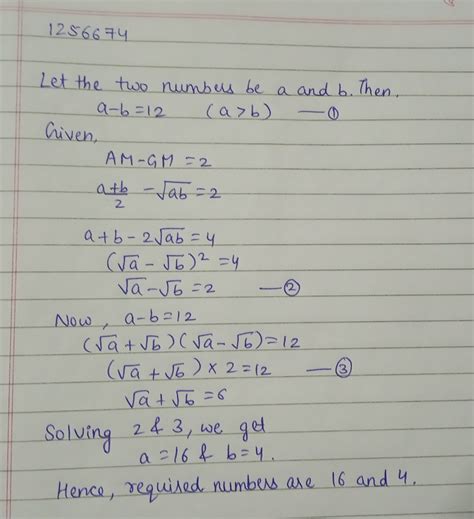 1256674
Let the two numbers be a and b. Then,
a-b=12 (a>b) —①
Given,
AM-GM=2
a+b/2 -√ab=2
a+b-2√ab=4
(√a-√b)²=4
√a-√b=2 —②
Now, a-b=12
(√a+√b)(√a-√b)=12
(√a+√b)×2=12 —③
√a+√b=6
Solving 2 & 3, we get
a=16 & b=4.
Hence, required numbers are 16 and 4.